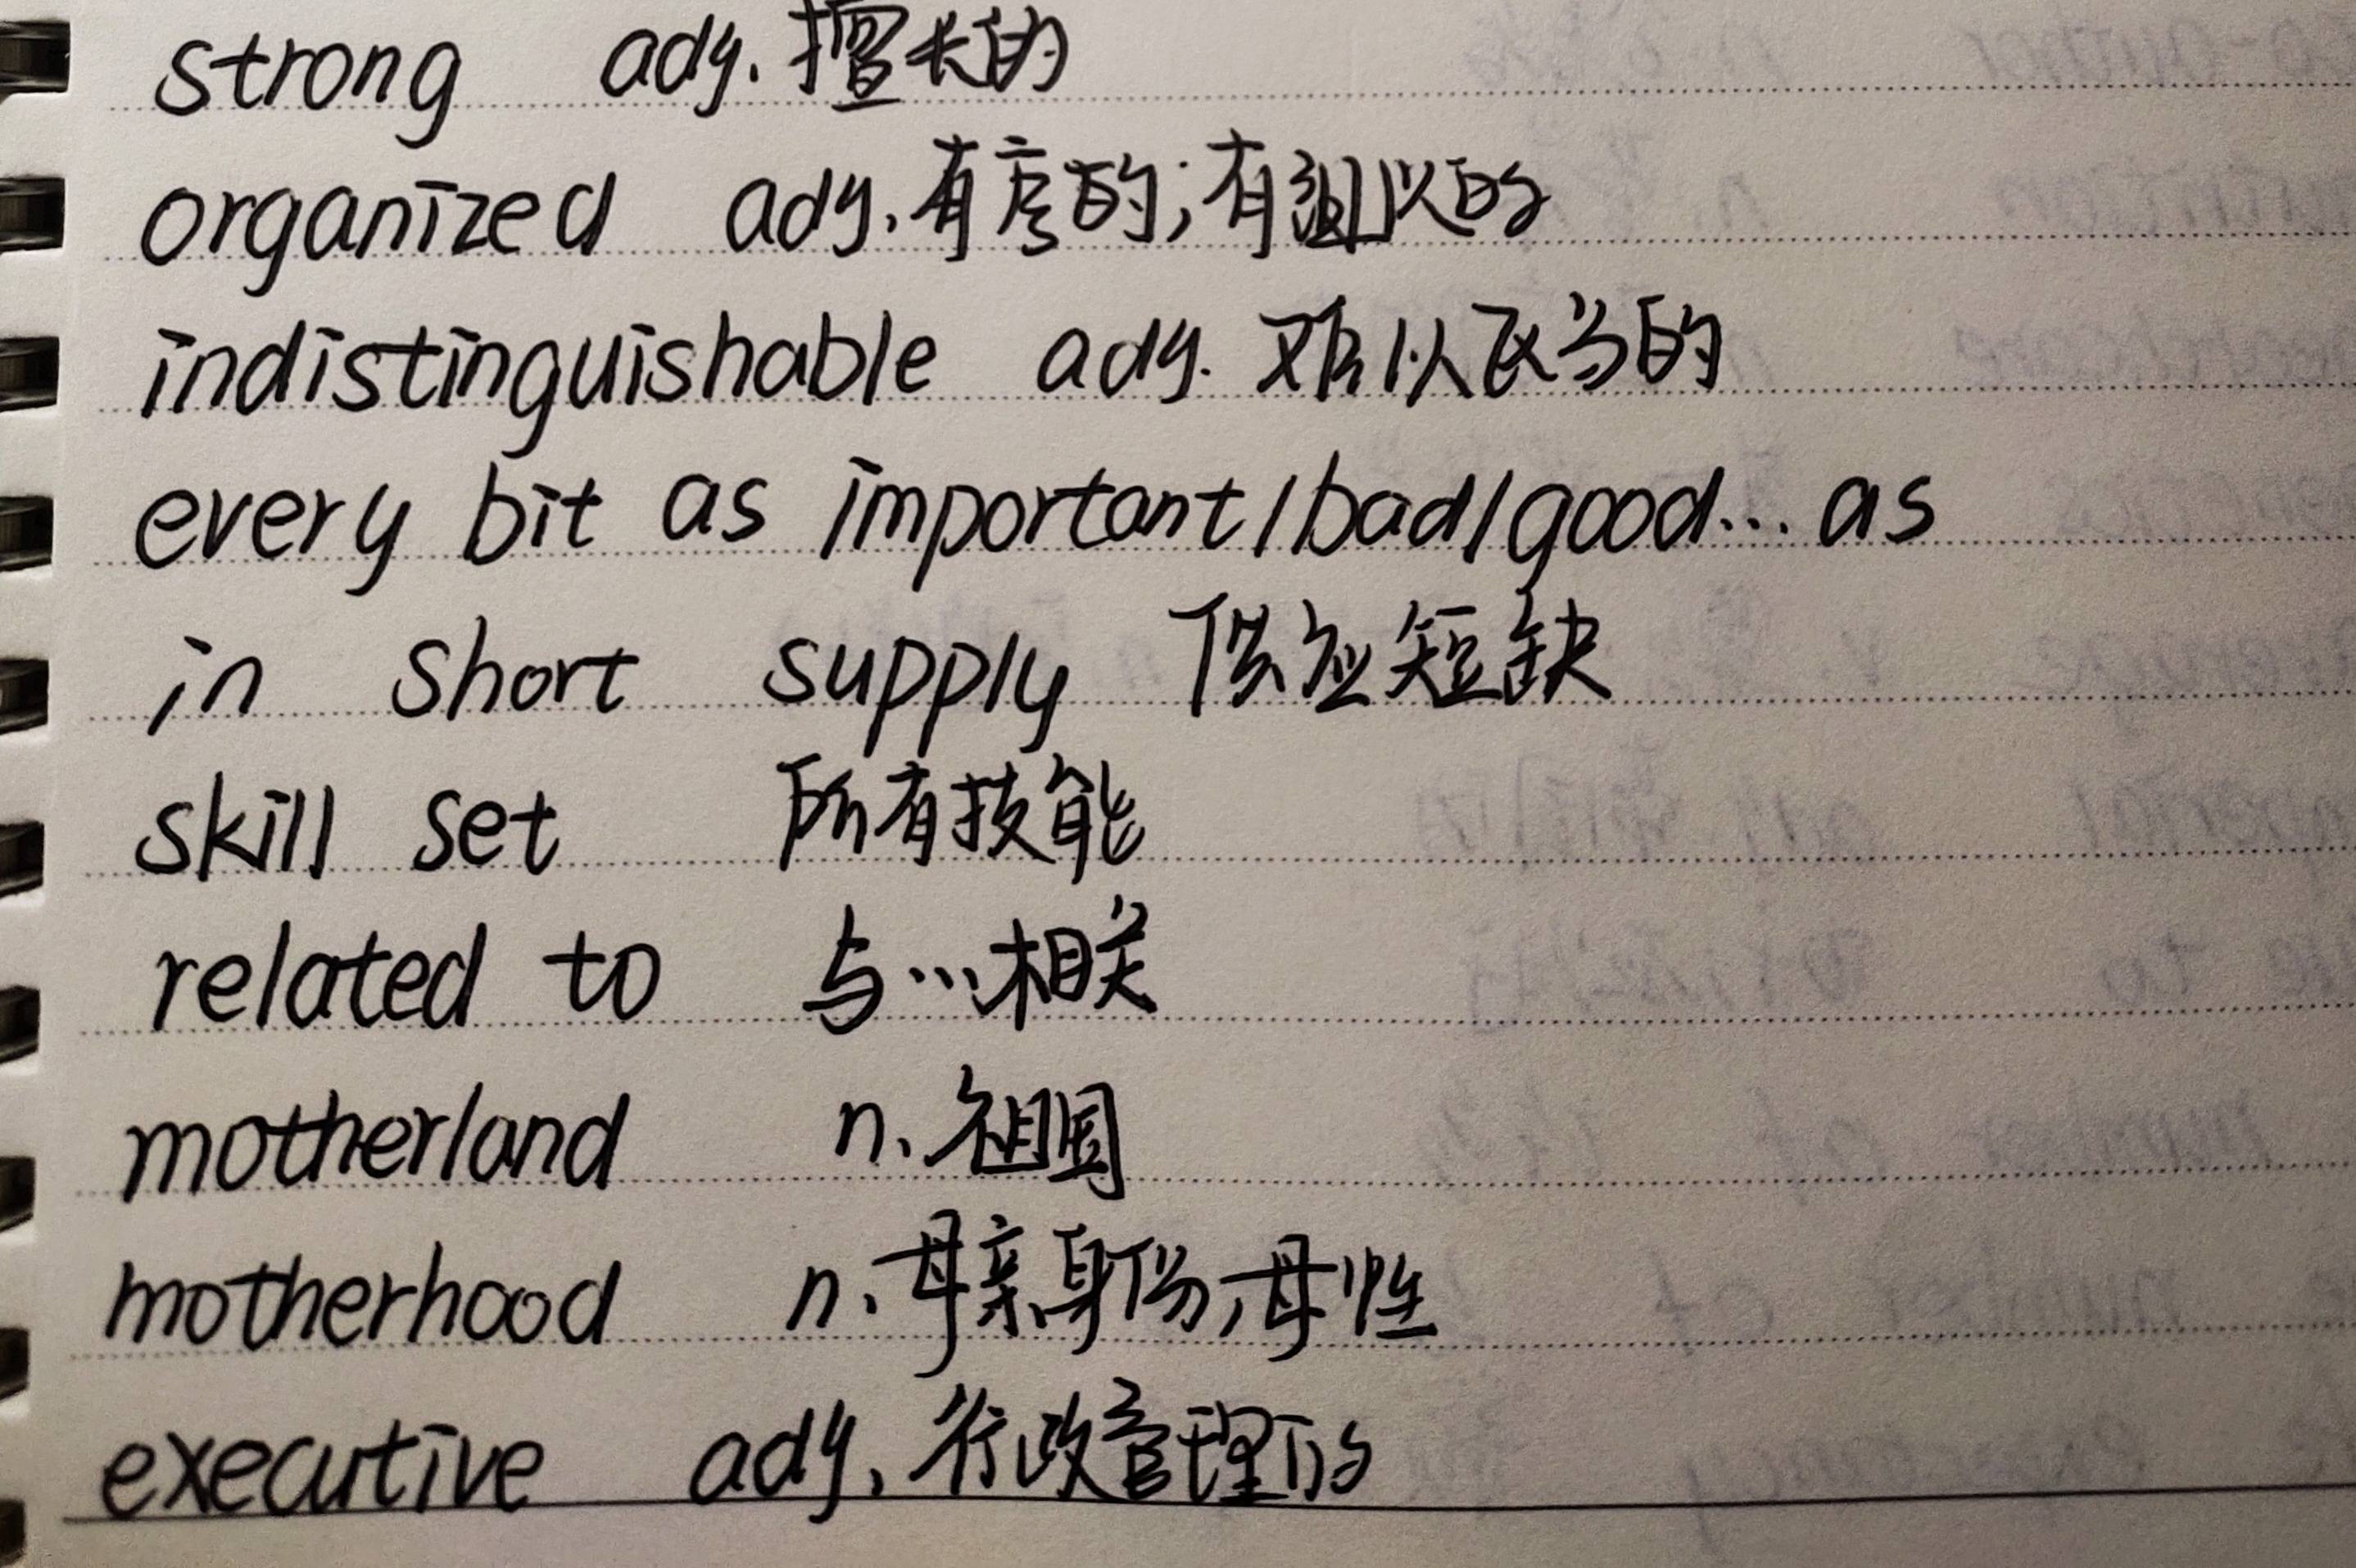 strong adj. 擅长的
organized adj. 有序的；有组织的
indistinguishable adj. 难以区分的
every bit as important/bad/good... as
in short supply 供应短缺
skill set 所有技能
related to 与…相关
motherland n. 祖国
motherhood n. 母亲身份,母性
executive adj. 行政管理的